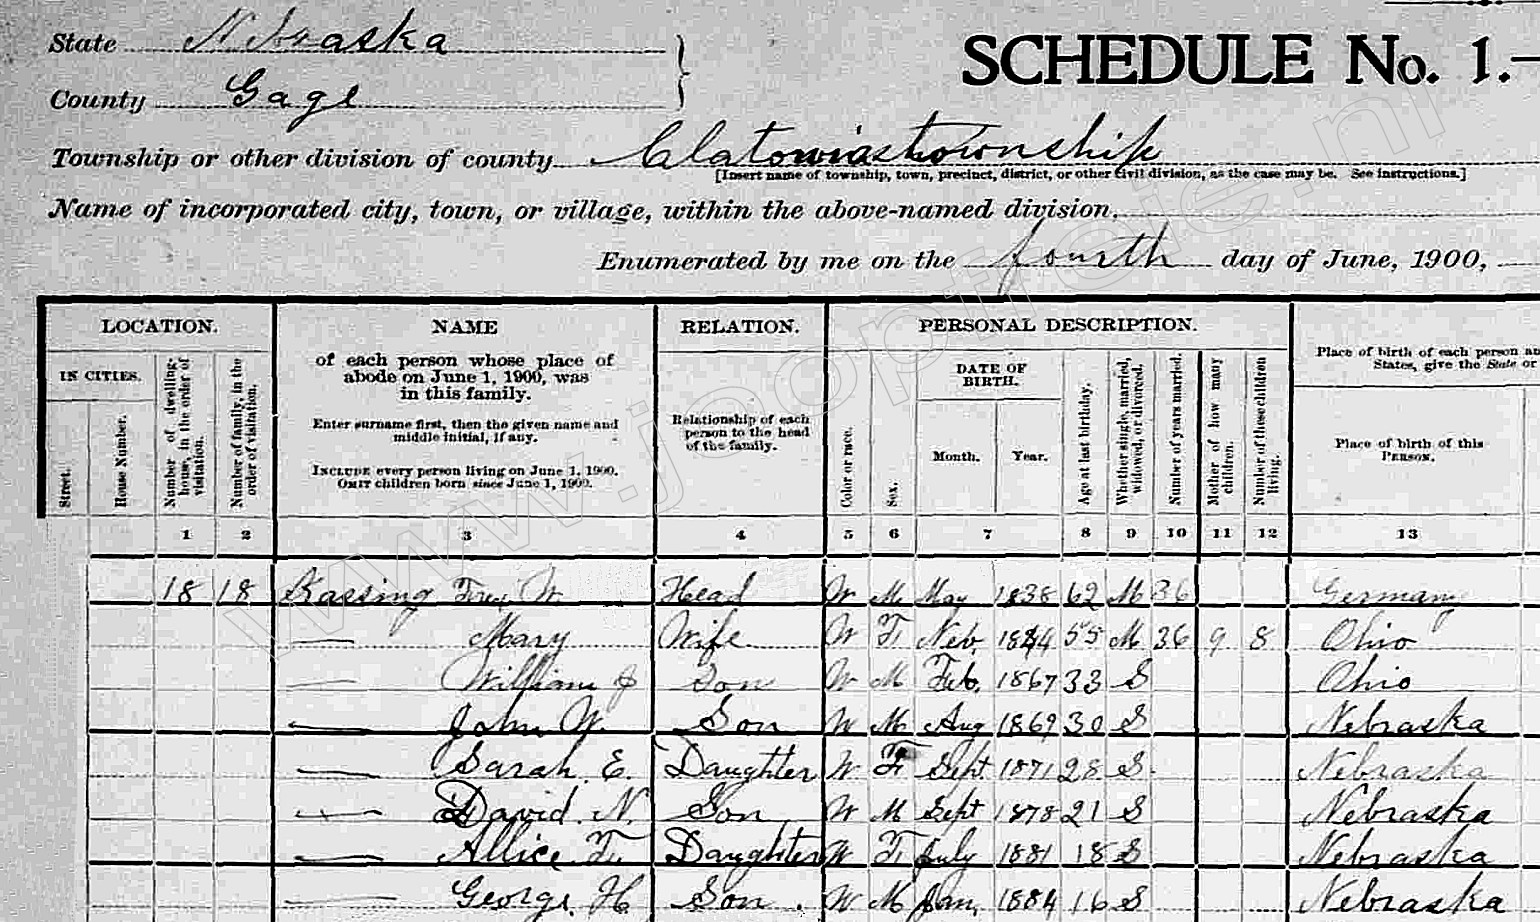 State Nebraska
County Gage
SCHEDULE No. 1.—
Township or other division of county Clatonia township
[Insert name of township, town, precinct, district, or other civil division, as the case may be. See instructions.]
Name of incorporated city, town, or village, within the above-named division,
Enumerated by me on the fourth day of June, 1900,
LOCATION. NAME RELATION. PERSONAL DESCRIPTION.
IN CITIES.
Street.
House Number.
Number of dwelling-house, in the order of visitation.
Number of family, in the order of visitation.
of each person whose place of
abode on June 1, 1900, was
in this family.
Enter surname first, then the given name and
middle initial, if any.
INCLUDE every person living on June 1, 1900.
OMIT children born since June 1, 1900.
Relationship of each
person to the head
of the family.
Color or race.
Sex.
DATE OF
BIRTH.
Month. Year.
Age at last birthday.
Whether single, married, widowed, or divorced.
Number of years married.
Mother of how many children.
Number of these children living.
Place of birth of each person an
States, give the State or
Place of birth of this
PERSON.
1 2 3 4 5 6 7 8 9 10 11 12 13
18 18 Kassing W. Head W M May 1838 62 M 36 Germany
— Mary Wife W F 1844 55 M 36 9 8 Ohio
— William J Son W M Feb. 1867 33 S Ohio
— John W. Son W M Aug 1869 30 S Nebraska
— Sarah. E. Daughter W F Sept 1871 28 S Nebraska
— David. N. Son W M Sept 1878 21 S Nebraska
— Allice. F. Daughter W F July 1881 18 S Nebraska
— George. H Son. W M Jan, 1884 16 S Nebraska
www.jooptreie.nl